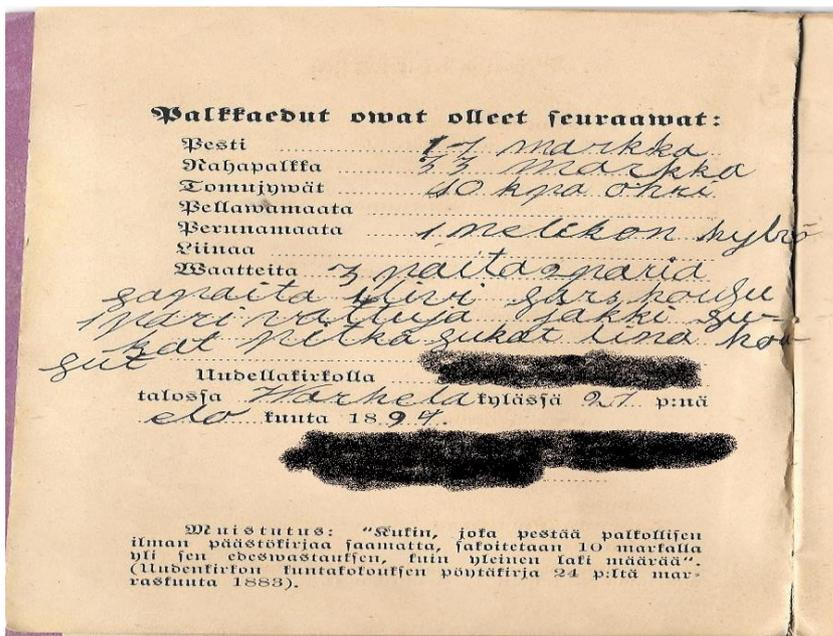 Palkkaedut owat olleet seuraawat:
Pesti 17 markka
Rahapalkka 33 markka
Tomujywät 40 kpa ohri
Pellawamaata
Perunamaata 1 nelikon kylvö
Liinaa
Waatteita 3 paitaa 2 paria
sapaita liivi sarshousu
1 pari vattuja jakki su-
kat Pitkä sukat liina hou
sut
Uudellakirkolla
talossa Warhela kylässä 27 p:nä
elo kuuta 1897.
Muistutus: "Kukin, joka pestää palkollisen
ilman päästökirjaa saamatta, sakoitetaan 10 markalla
yli sen edeswastauksen, kuin yleinen laki määrää".
(Uudenkirkon kuntakokouksen pöytäkirja 24 p:ltä mar-
raskuuta 1883).